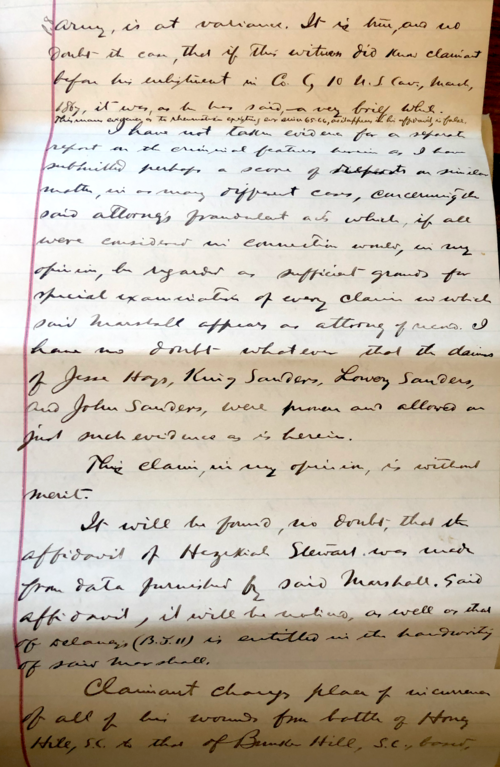 Army, is at variance. It is true, and no
doubt the case, that if this witness did know claimant
before his enlistment in Co. G, 10 U.S. Cav., March,
1867, it was, as he has said, a very brief while.
I have not taken evidence for a separate
report on the criminal features herein as I have
submitted perhaps a score of reports on similar
matter, in as many different cases, concerning the
said attorney's fraudulent acts which, if all
were considered in connection would, in my
opinion, be regarded as sufficient grounds for
special examination of every claim in which
said Marshall appears as attorney of record. I
have no doubt whatever that the claims
of Jesse Hays, King Sanders, Lowey Sanders,
and John Sanders, were proven and allowed on
just such evidence as is herein.
This claim, in my opinion, is without
merit.
It will be found, no doubt, that the
affidavit of Hezekiah Stewart was made
from data furnished by said Marshall. Said
affidavit, it will be noticed, as well as that
of Delaney (B.J. 11) is entitled in the handwriting
of said Marshall.
Claimant changes place of incurrence
of all of his wounds from battle of Honey
Hill, S.C. to that of Bunker Hill, S.C.,